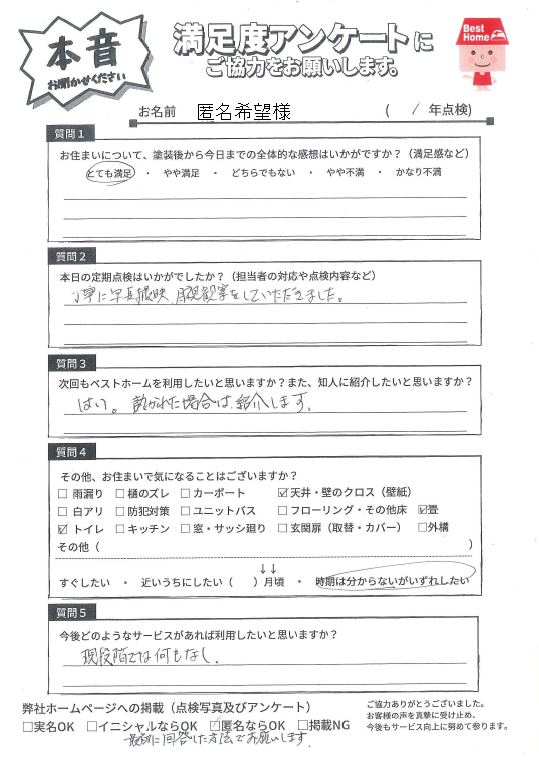 本音
お聞かせください
満足度アンケートに
ご協力をお願いします。
Best Home
お名前 匿名希望様 ( / 年点検)
質問1
お住まいについて、塗装後から今日までの全体的な感想はいかがですか？（満足感など）
とても満足 ・ やや満足 ・ どちらでもない ・ やや不満 ・ かなり不満
質問2
本日の定期点検はいかがでしたか？（担当者の対応や点検内容など）
丁寧に写真撮映、目視観察をしていただきました。
質問3
次回もベストホームを利用したいと思いますか？また、知人に紹介したいと思いますか？
はい。訊かれた場合は、紹介します。
質問4
その他、お住まいで気になることはございますか？
☐ 雨漏り ☐ 樋のズレ ☐ カーポート ☑ 天井・壁のクロス（壁紙）
☐ 白アリ ☐ 防犯対策 ☐ ユニットバス ☐ フローリング・その他床 ☑畳
☑ トイレ ☐ キッチン ☐ 窓・サッシ廻り ☐ 玄関扉（取替・カバー） ☐外構
その他（ ）
↓↓
すぐしたい ・ 近いうちにしたい（ ）月頃 ・ 時期は分からないがいずれしたい
質問5
今後どのようなサービスがあれば利用したいと思いますか？
現段階では何もなし。
弊社ホームページへの掲載（点検写真及びアンケート）
☐実名OK ☐イニシャルならOK ☑匿名ならOK ☐掲載NG
最初に回答した方法でお願いします
ご協力ありがとうございました。
お客様の声を真摯に受け止め、
今後もサービス向上に努めて参ります。